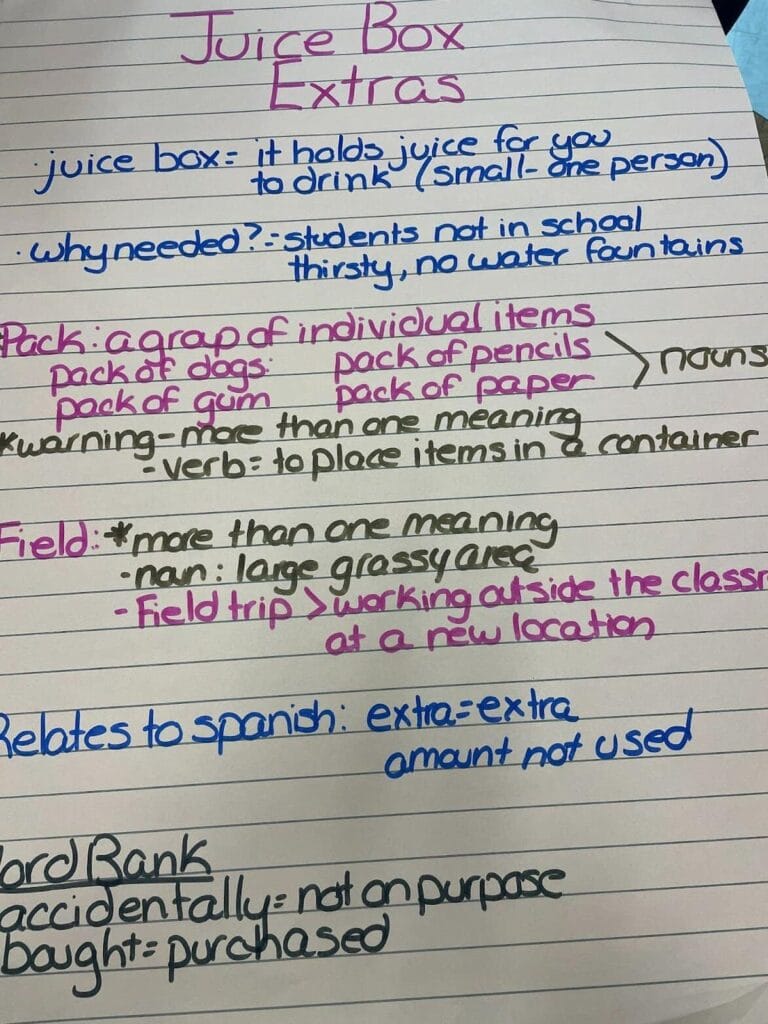 Juice Box
Extras
·juice box= it holds juice for you
to drink (small- one person)
·why needed?-students not in school
thirsty, no water fountains
Pack: a grap of individual items
pack of dogs: pack of pencils > nouns
pack of gum pack of paper
*warning-more than one meaning
-verb= to place items in a container
Field: *more than one meaning
-noun: large grassy area
-Field trip > working outside the classr
at a new location
Relates to spanish: extra=extra
amount not used
ord Bank
accidentally= not on purpose
bought= purchased